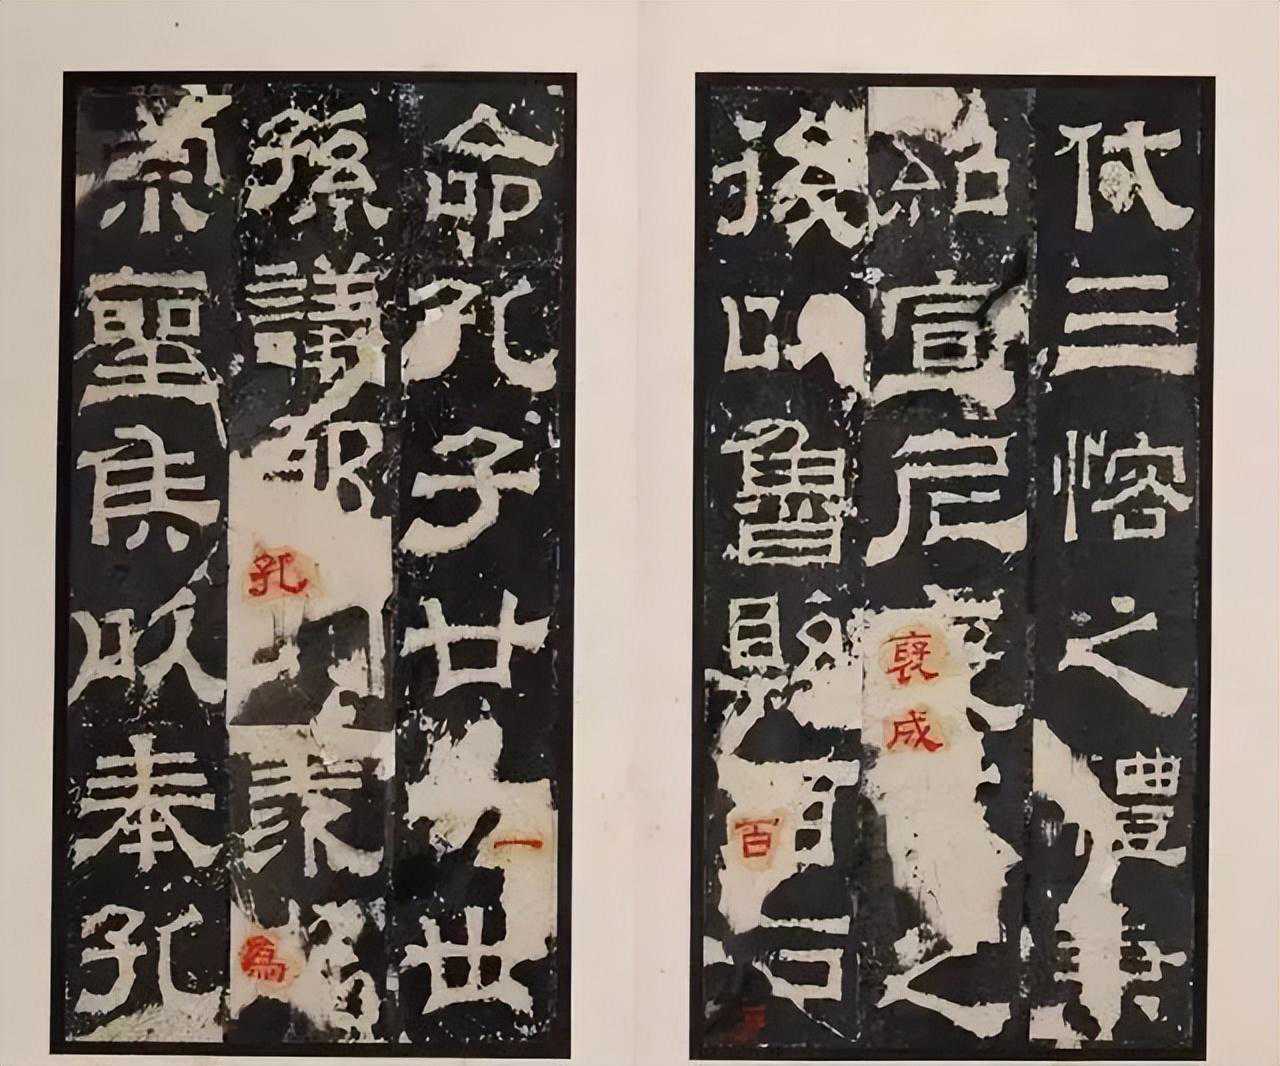 代三愘之禮兼
紹宣尼褒成之
後以魯縣百戶
命孔子廿一世
孫議郎孔羡為
宗聖侯以奉孔